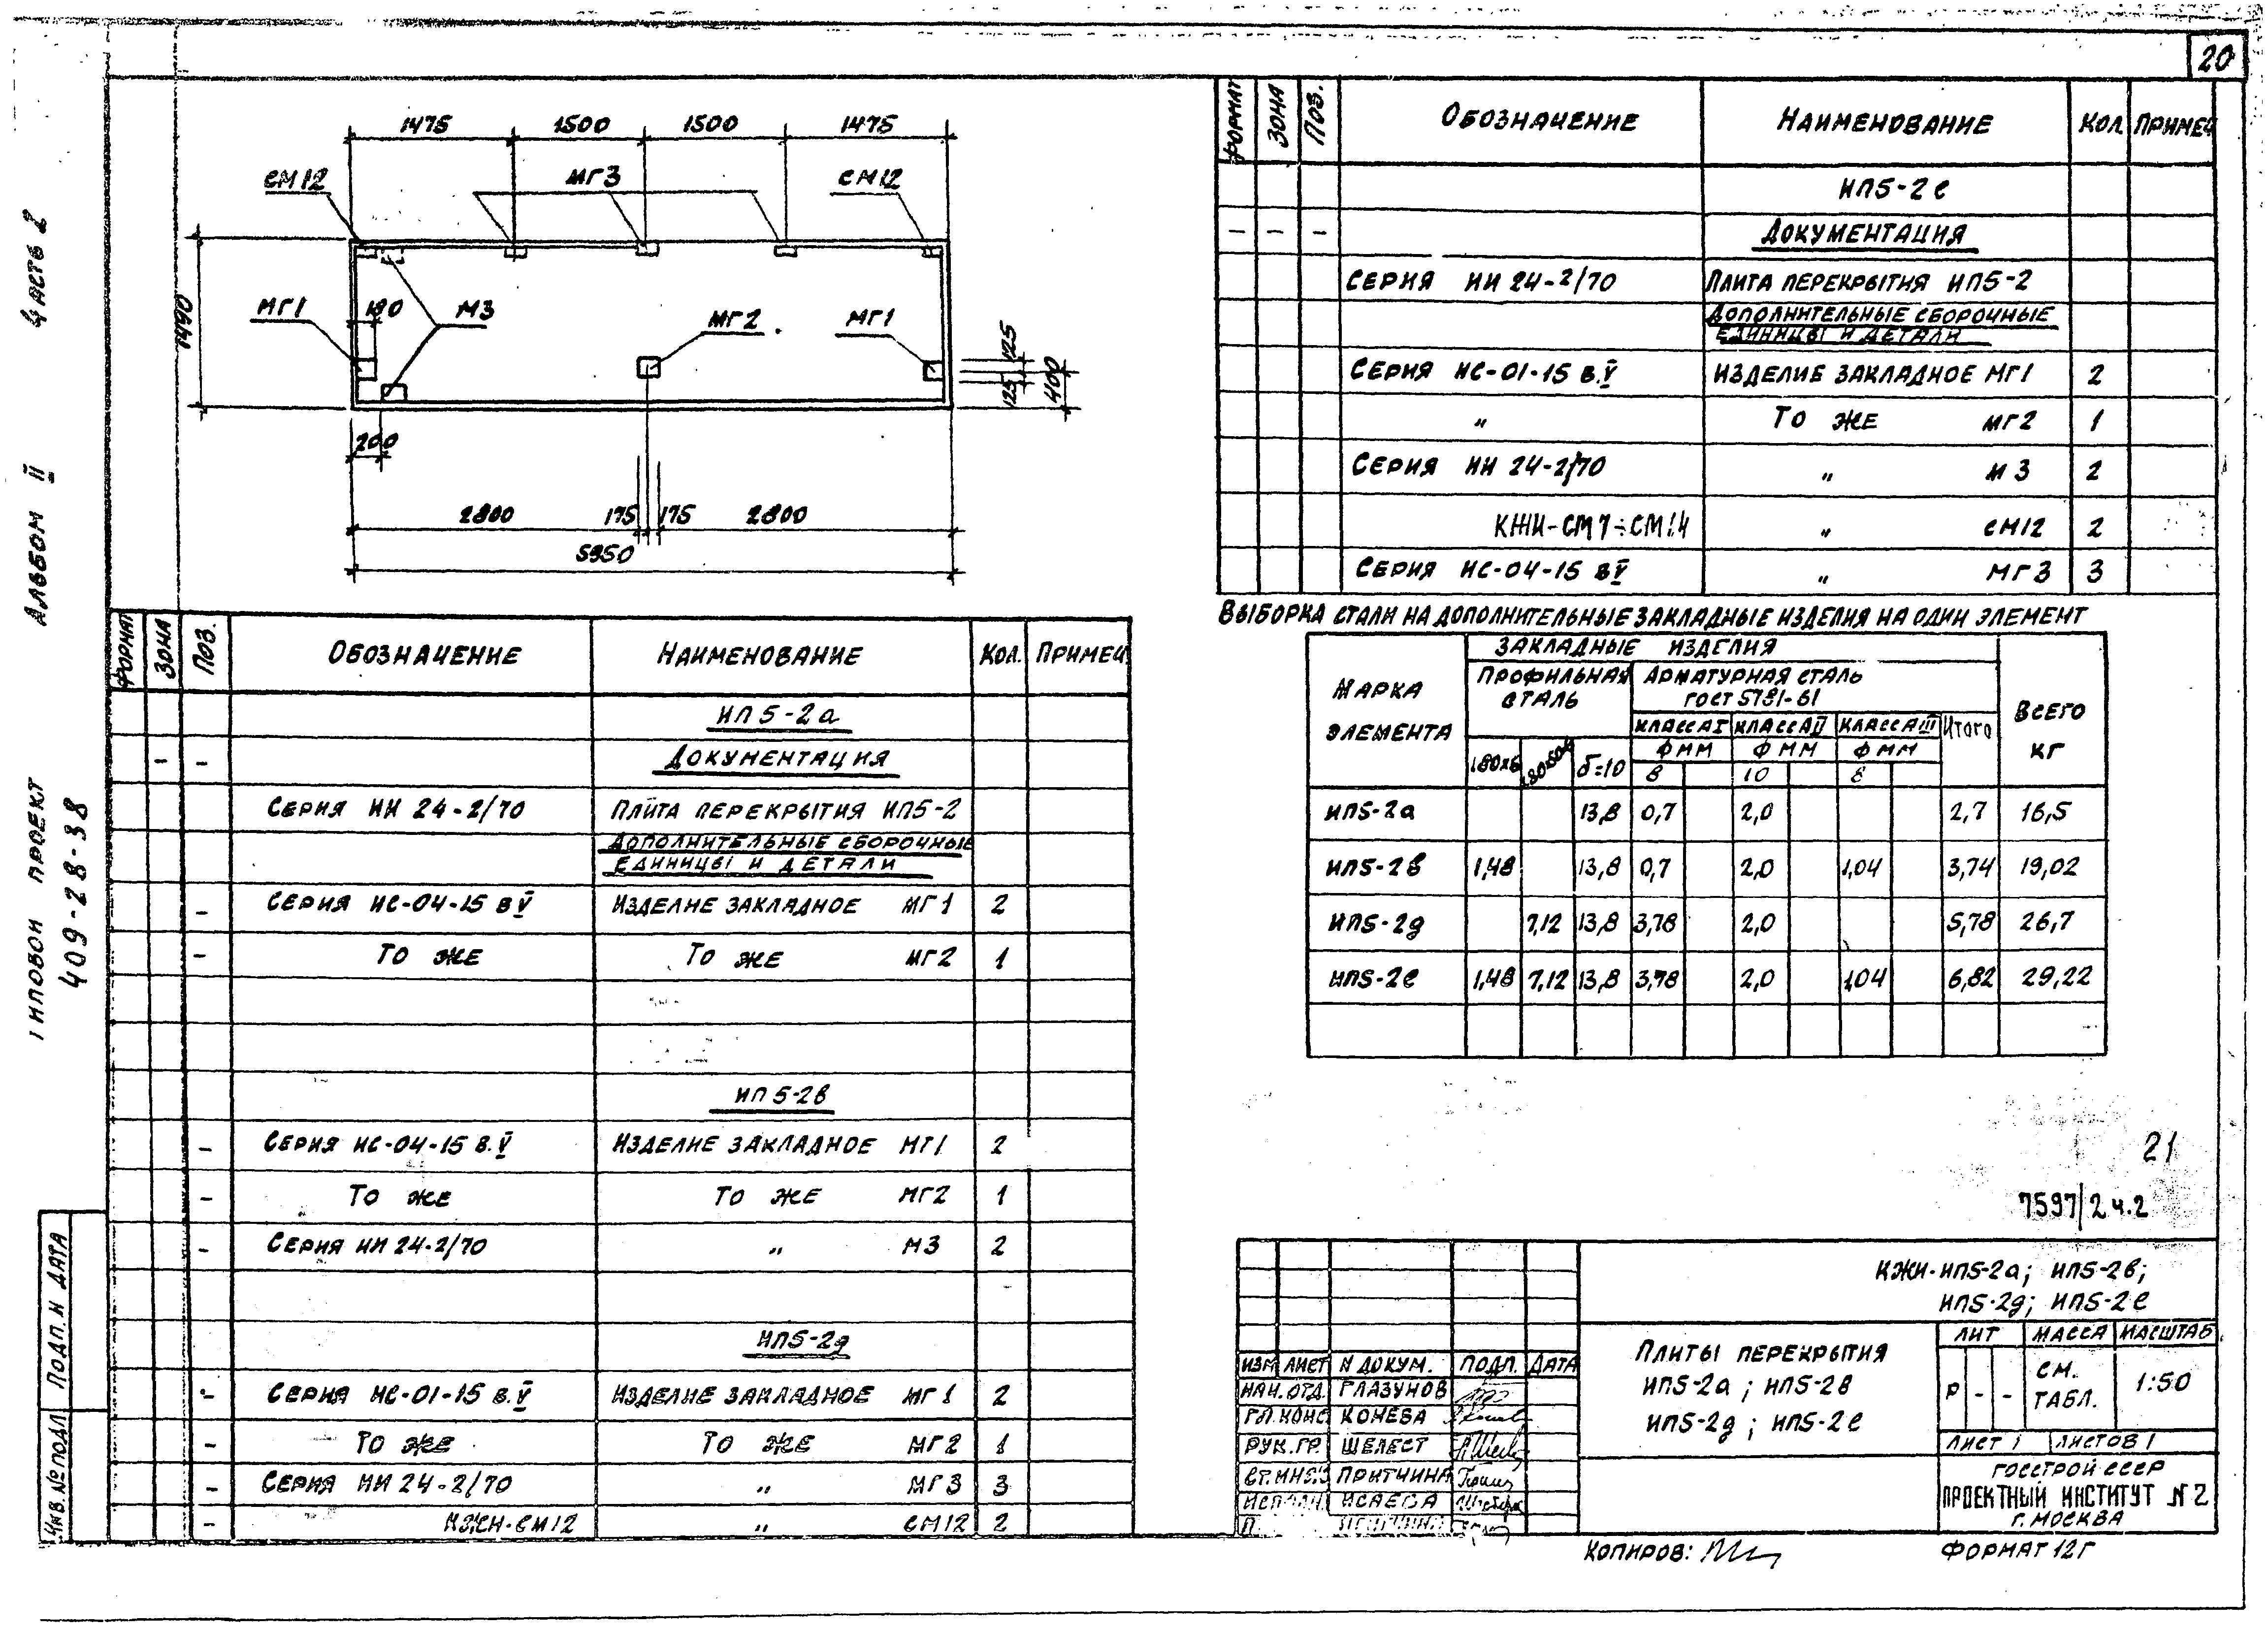 20
Часть 2
Альбом II
Типовой проект
409-28-38
Подп. и дата
Инв. № подл
1475 1500 1500 1475
СМ12 МГ3 СМ12
1490
МГ1 180 М3 МГ2 МГ1
125
125
400
200
2800 175 175 2800
5950
Формат Зона Поз. Обозначение Наименование Кол. Примеч
ИП5-2а
– – Документация
Серия ИИ 24-2/70 Плита перекрытия ИП5-2
Дополнительные сборочные
единицы и детали
– Серия ИС-04-15 в V Изделие закладное МГ1 2
– То же То же МГ2 1
ИП5-2в
– Серия ИС-04-15 в. V Изделие закладное МГ1 2
– То же То же МГ2 1
– Серия ИИ 24-2/70 " М3 2
ИП5-2д
– Серия ИС-01-15 в. V Изделие закладное МГ1 2
– То же То же МГ2 1
– Серия ИИ 24-2/70 " МГ3 3
– СМ12 " СМ12 2
Формат Зона Поз. Обозначение Наименование Кол. Примеч
ИП5-2е
– – – Документация
Серия ИИ 24-2/70 Плита перекрытия ИП5-2
Дополнительные сборочные
единицы и детали
Серия ИС-01-15 в. V Изделие закладное МГ1 2
" То же МГ2 1
Серия ИИ 24-2/70 " М3 2
КЖИ-СМ7÷СМ14 " СМ12 2
Серия ИС-04-15 в V " МГ3 3
Выборка стали на дополнительные закладные изделия на один элемент
Марка элемента Закладные изделия Всего кг
Профильная сталь Арматурная сталь ГОСТ 5781-61
Класс АI Класс АII Класс АIII Итого
Ф мм Ф мм Ф мм
δ=10 8 10 8
ИП5-2а 13,8 0,7 2,0 2,7 16,5
ИП5-2в 1,48 13,8 0,7 2,0 1,04 3,74 19,02
ИП5-2д 7,12 13,8 3,78 2,0 5,78 26,7
ИП5-2е 1,48 7,12 13,8 3,78 2,0 1,04 6,82 29,22
21
7597/2 ч.2
КЖИ-ИП5-2а; ИП5-2в;
ИП5-2д; ИП5-2е
Изм Лист N докум. Подп. Дата
Нач. отд. Глазунов
Гл. конс Конева
Рук. гр. Шелест
Ст. инж Притчина
Исполн. Исаева
Плиты перекрытия
ИП5-2а; ИП5-2в
ИП5-2д; ИП5-2е
Лит Масса Масштаб
Р – – См. табл. 1:50
Лист 1 Листов 1
Госстрой СССР
Проектный институт №2
г. Москва
Копиров: Формат 12Г